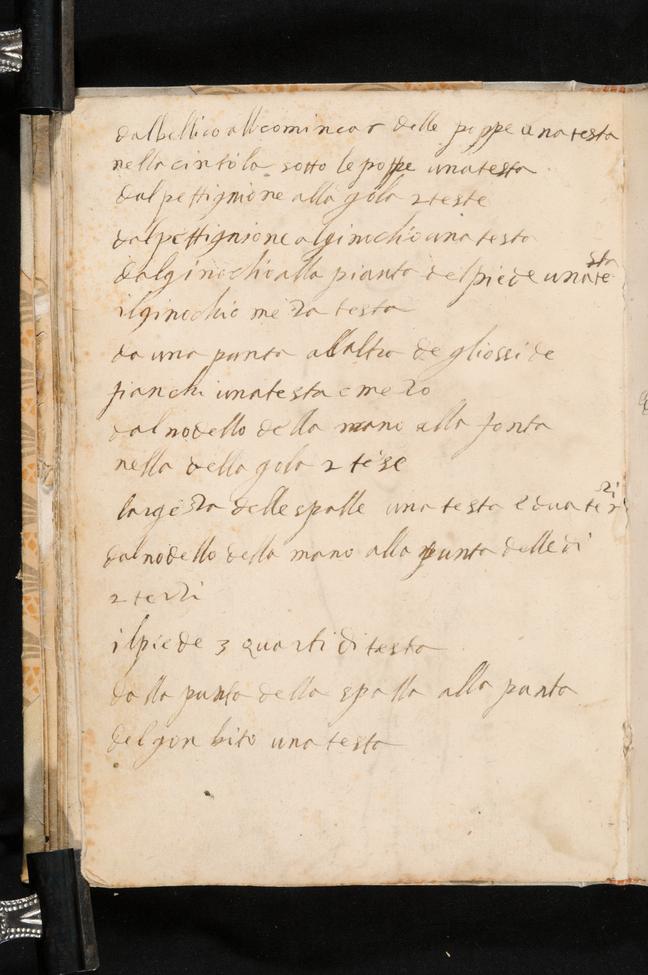 dalbellico all comincar delle poppe una testa
nella cintola sotto le poppe una testa
dal pettignione alla gola 2 teste
dal pettignione al ginochio una testa
dalginochio alla pianta del piede una testa
il ginochio meza testa
da una punta all altra de gliossi de
fianchi una testa e mezo
dal nodello della mano alla fonta
nella della gola 2 tese
largeza delle spalle una testa e dua terzi
dal nodello della mano alla punta delle di
2 terzi
il piede 3 quarti di testa
dalla punta della spalla alla punta
del gon bito una testa